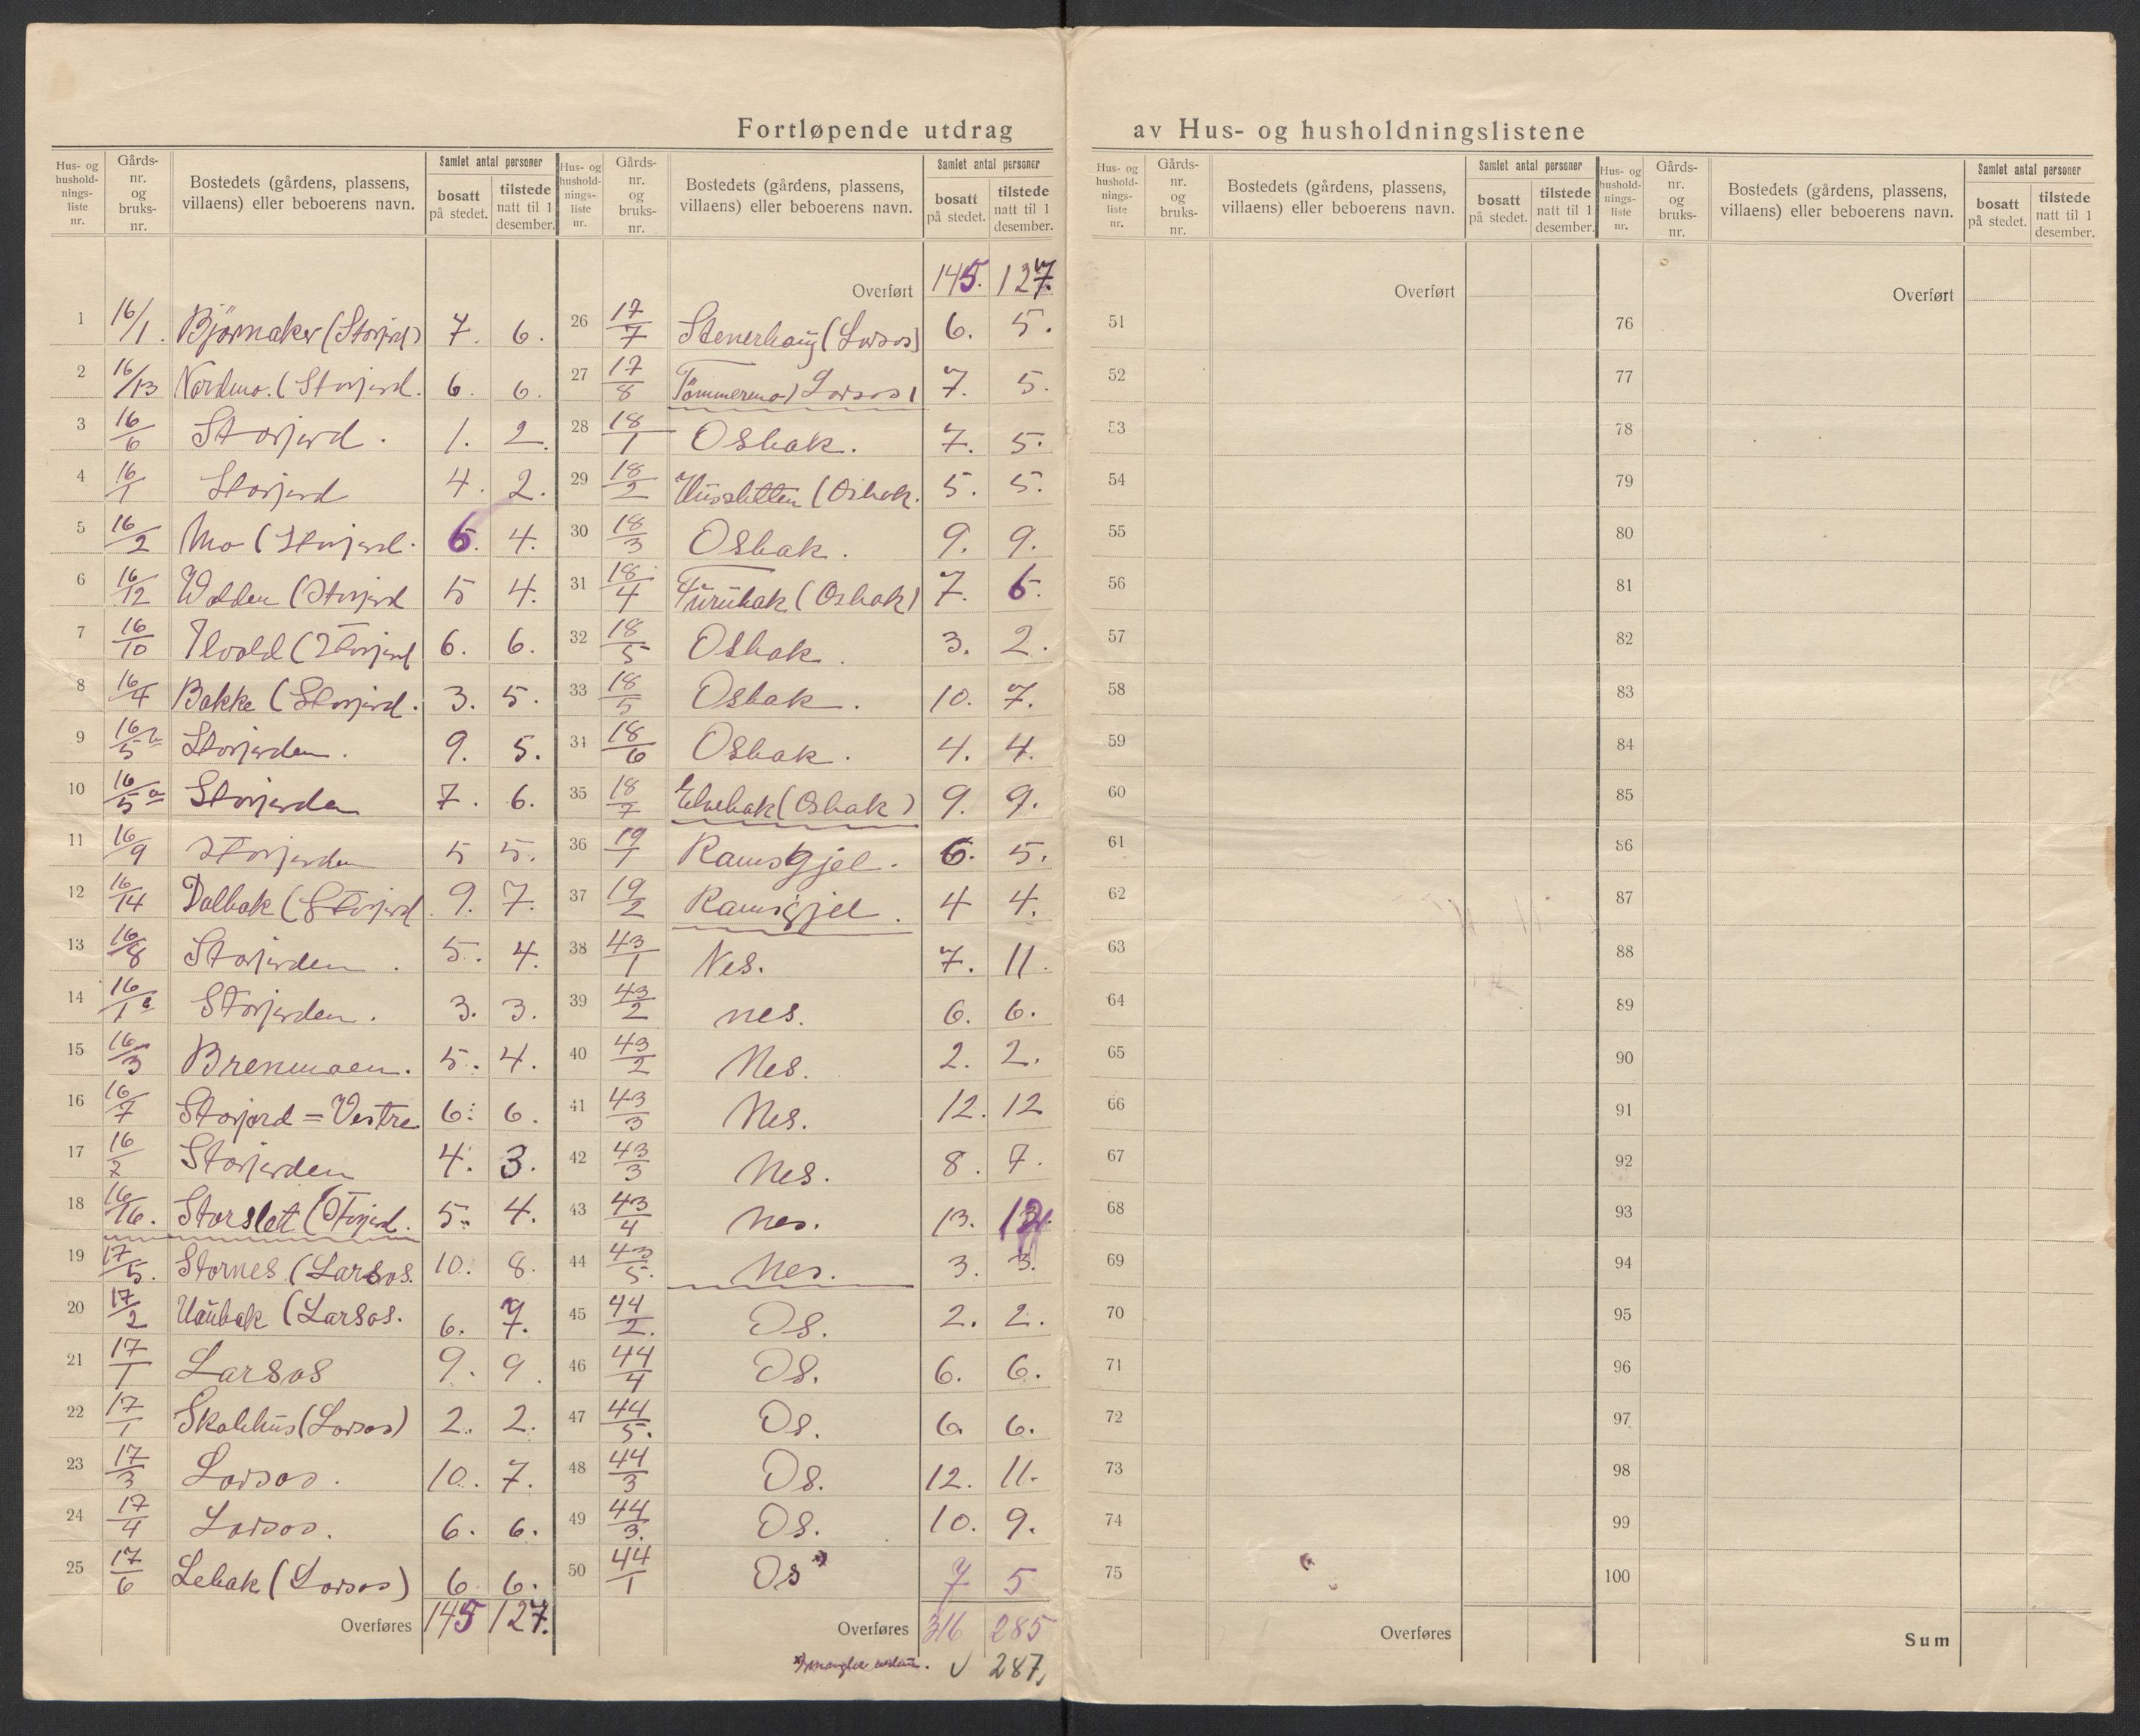 Fortløpende utdrag av Hus- og husholdningslistene
Hus- og hushold-nings-liste nr. | Gårds-nr. og bruks-nr. | Bostedets (gårdens, plassens, villaens) eller beboerens navn. | Samlet antal personer | bosatt på stedet. | tilstede natt til 1 desember.
1 16/1. Björnaker (Storjord) 7. 6.
2 16/13 Nordmo. (Storjord. 6. 6.
3 16/6 Storjord. 1. 2.
4 16/1 Storjord 4. 2.
5 16/2 Mo (Storjord. 6. 4.
6 16/12 Wolden (Storjord 5 4.
7 16/10 (Storjord 6. 6.
8 16/4 Bakke (Storjord. 3. 5.
9 16/5 b Storjorden. 9. 5.
10 16/5 a Storjorden 7. 6.
11 16/9 Storjorden 5 5.
12 16/14 Dalbak (Storjord. 9. 7.
13 16/8 Storjorden. 5. 4.
14 16/1 Storjorden. 3. 3.
15 16/3 Brenmoen. 5. 4.
16 16/7 Storjord = Vestre 6. 6.
17 16/7 Storjorden 4. 3.
18 16/16. Storslett (Storjord. 5. 4.
19 17/5. Stornes (Larsos. 10. 8.
20 17/2 (Larsos. 6. 7.
21 17/1 Larsos 9. 9.
22 17/1 (Larsos) 2. 2.
23 17/3 Larsos. 10. 7.
24 17/4 Larsos. 6. 6.
25 17/6 Lebak (Larsos) 6. 6.
Overføres 145 127.
Hus- og hushold-nings-liste nr. | Gårds-nr. og bruks-nr. | Bostedets (gårdens, plassens, villaens) eller beboerens navn. | Samlet antal personer | bosatt på stedet. | tilstede natt til 1 desember.
Overført 145. 127.
26 17/7 Stenerhaug (Larsos) 6. 5.
27 17/8 Tömmermo) Larsos) 7. 5.
28 18/1 Osbak. 7. 5.
29 18/2 (Osbak. 5. 5.
30 18/3 Osbak. 9. 9.
31 18/4 Furubak (Osbak) 7. 6.
32 18/5 Osbak. 3. 2.
33 18/5 Osbak. 10. 7.
34 18/6 Osbak. 4. 4.
35 18/7 Elvebak (Osbak) 9. 9.
36 19/1 Ramsgjel. 6. 5.
37 19/2 Ramsgjel. 4 4.
38 43/1 Nes. 7. 11.
39 43/2 nes. 6. 6.
40 43/2 Nes. 2. 2.
41 43/3 Nes. 12. 12
42 43/3 Nes. 8. 7.
43 43/4 nes. 13.
44 43/5. Nes. 3. 3.
45 44/2. Os. 2. 2.
46 44/4 Os. 6. 6.
47 44/5. Os. 6. 6.
48 44/3 Os. 12. 11.
49 44/3. Os. 10. 9.
50 44/1 Os *) 7 5
Overføres 316 285
*) mangler v 287,
Hus- og hushold-nings-liste nr. | Gårds-nr. og bruks-nr. | Bostedets (gårdens, plassens, villaens) eller beboerens navn. | Samlet antal personer | bosatt på stedet. | tilstede natt til 1 desember.
Overført
51
52
53
54
55
56
57
58
59
60
61
62
63
64
65
66
67
68
69
70
71
72
73
74
75
Overføres
Hus- og hushold-nings-liste nr. | Gårds-nr. og bruks-nr. | Bostedets (gårdens, plassens, villaens) eller beboerens navn. | Samlet antal personer | bosatt på stedet. | tilstede natt til 1 desember.
Overført
76
77
78
79
80
81
82
83
84
85
86
87
88
89
90
91
92
93
94
95
96
97
98
99
100
Sum